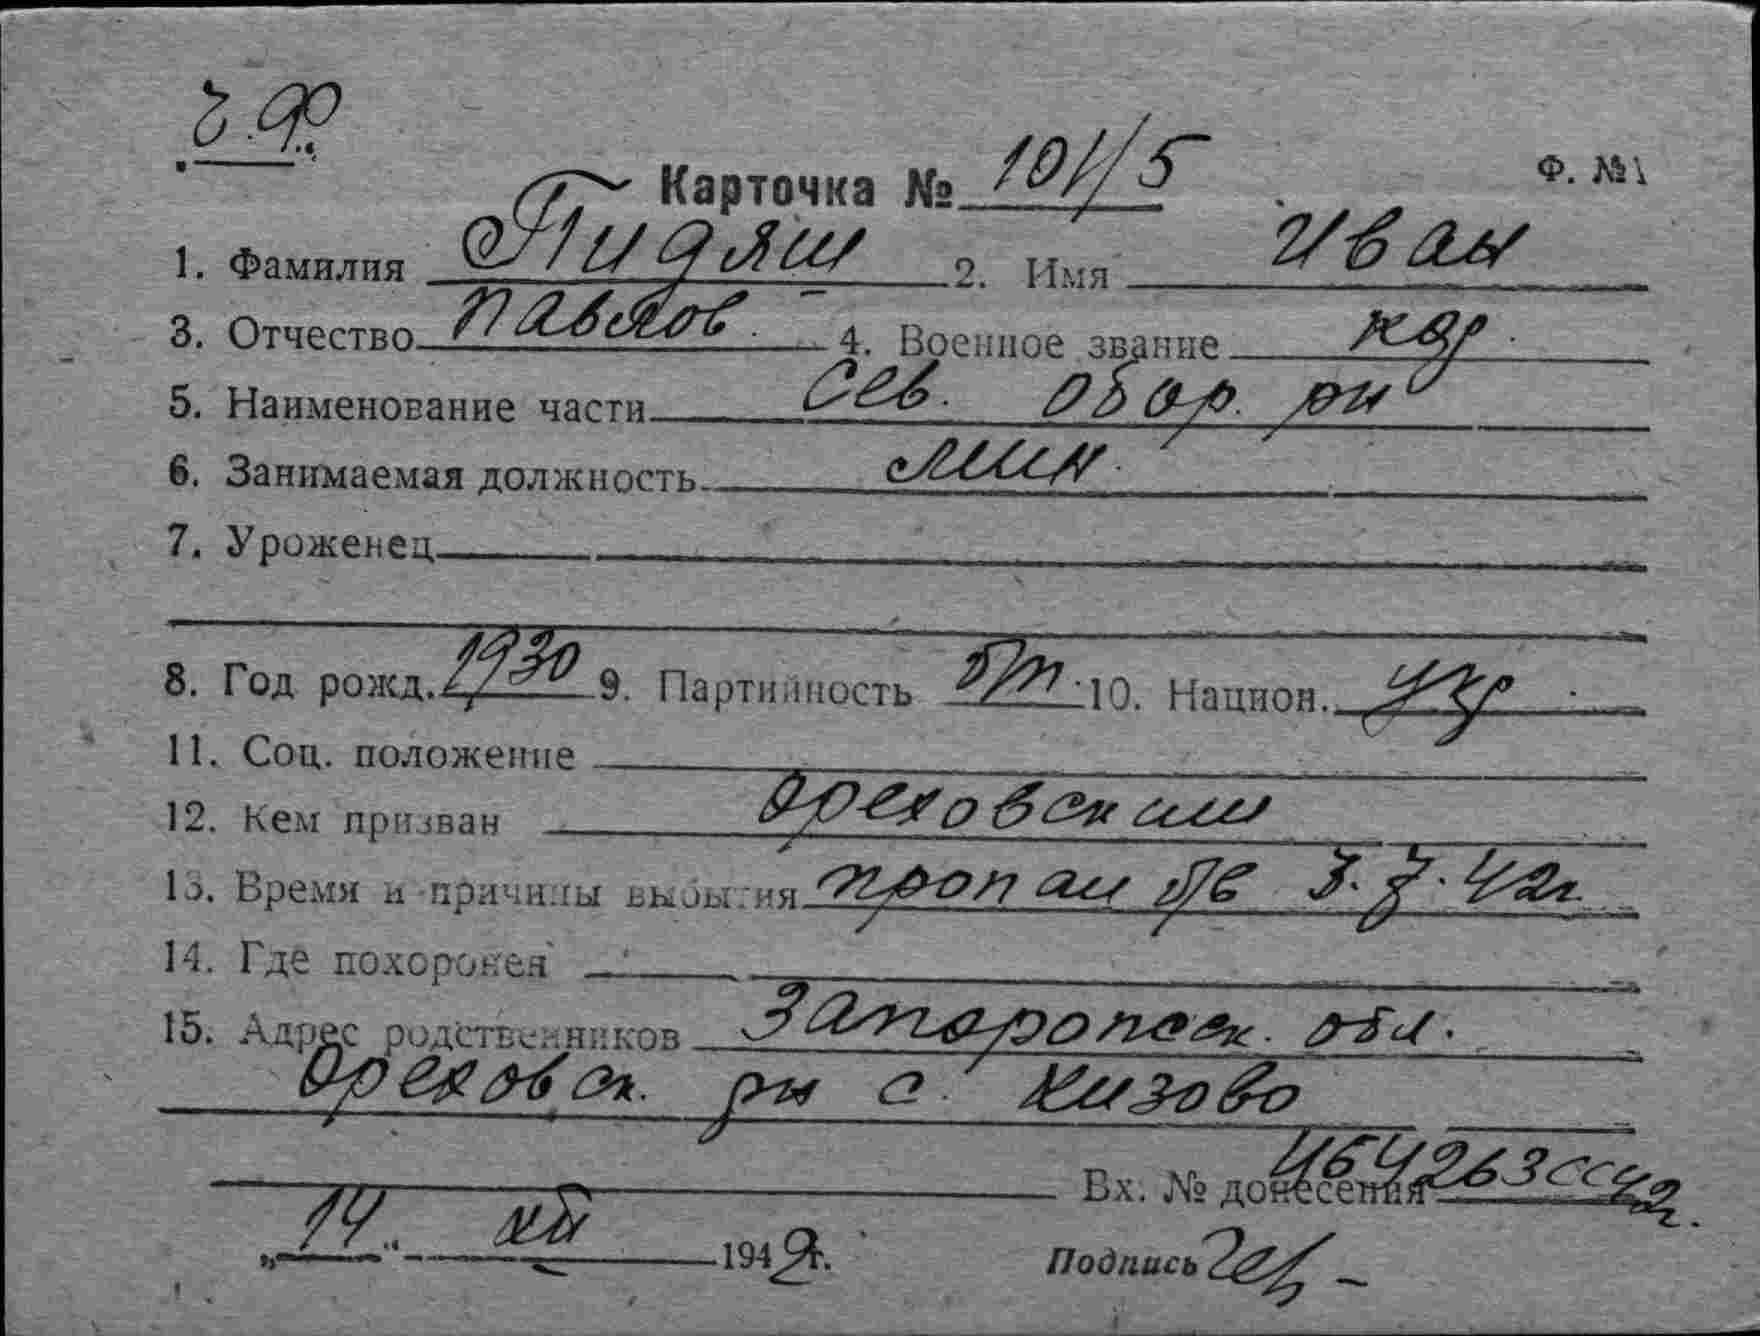 Ч.Ф.
Карточка № 101/5 Ф. №1
1. Фамилия Пидяш 2. Имя Иван
3. Отчество Павлов. 4. Военное звание кр.
5. Наименование части Сев. обор. рн
6. Занимаемая должность мин.
7. Уроженец
8. Год рожд. 1930 9. Партийность б/п. 10. Национ. укр.
11. Соц. положение
12. Кем призван Ореховским
13. Время и причины выбытия пропал б/в 3.7.42г.
14. Где похоронен
15. Адрес родственников Запоропск. обл.
Ореховск. рн с. Кизово
Вх. № донесения
"14" XII 1942г.
Подпись